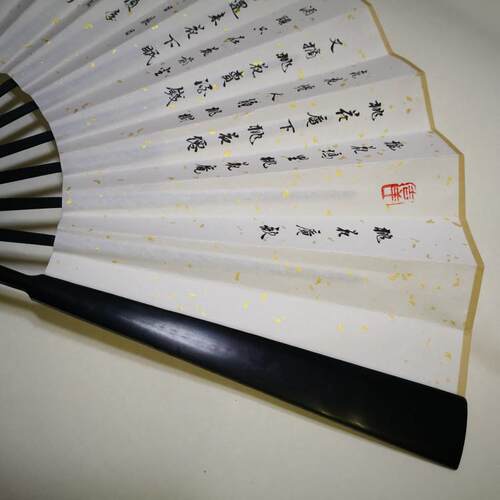 桃花庵歌
桃花塢里桃花庵
桃花庵下桃花仙
桃花仙人種桃樹
又摘桃花賣酒錢
花前坐
還来花下眠